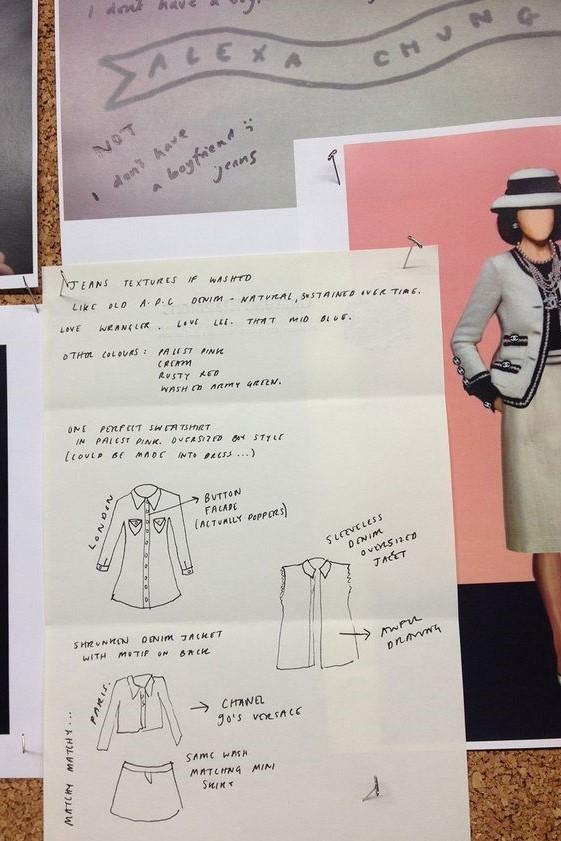 I don't have a boy
ALEXA CHUNG
NOT
I don't have
a boyfriend
jeans
JEANS TEXTURES IF WASHED
LIKE OLD A.P.C DENIM - NATURAL, SUSTAINED OVER TIME.
LOVE WRANGLER. LOVE LEE. THAT MID BLUE.
OTHER COLOURS: PALEST PINK
CREAM
RUSTY RED
WASHED ARMY GREEN.
ONE PERFECT SWEATSHIRT
IN PALEST PINK. OVERSIZED BOY STYLE
(COULD BE MADE INTO DRESS...)
LONDON
BUTTON
FACADE
(ACTUALLY POPPERS)
SLEEVELESS
DENIM
OVERSIZED
JACKET
AWFUL
DRAWING
SHRUNKEN DENIM JACKET
WITH MOTIF ON BACK
PARIS.
CHANEL
90'S VERSACE
MATCHY MATCHY...
SAME WASH
MATCHING MINI
SKIRT